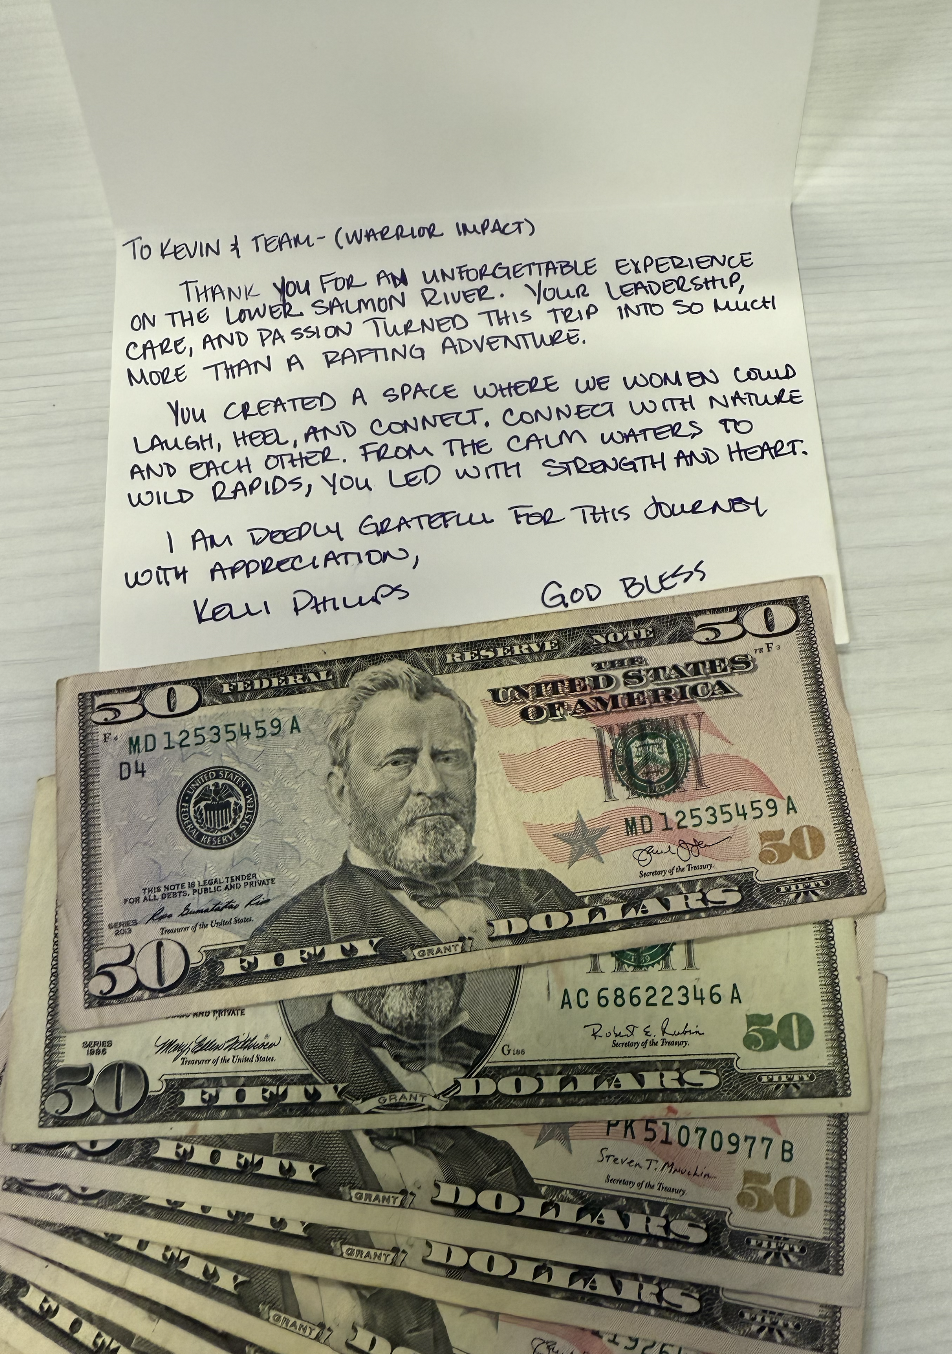 TO KEVIN & TEAM - (WARRIOR IMPACT)
THANK YOU FOR AN UNFORGETTABLE EXPERIENCE
ON THE LOWER SALMON RIVER. YOUR LEADERSHIP,
CARE, AND PASSION TURNED THIS TRIP INTO SO MUCH
MORE THAN A RAFTING ADVENTURE.
YOU CREATED A SPACE WHERE WE WOMEN COULD
LAUGH, HEEL, AND CONNECT. CONNECT WITH NATURE
AND EACH OTHER. FROM THE CALM WATERS TO
WILD RAPIDS, YOU LED WITH STRENGTH AND HEART.
I AM DEEPLY GRATEFUL FOR THIS JOURNEY
WITH APPRECIATION,
KELLI PHILLIPS GOD BLESS
50 FEDERAL RESERVE NOTE 50
THE
UNITED STATES
OF AMERICA
MD 12535459 A
D4
UNITED STATES FEDERAL RESERVE SYSTEM
MD 12535459 A
50
Secretary of the Treasury.
THIS NOTE IS LEGAL TENDER
FOR ALL DEBTS, PUBLIC AND PRIVATE
SERIES
2013
Rosa Gumataotao Rios
Treasurer of the United States.
50 FIFTY GRANT DOLLARS FIFTY
AND PRIVATE
AC 68622346 A
SERIES
1996
Mary Ellen Withrow
Treasurer of the United States.
G
Robert E. Rubin
Secretary of the Treasury.
50
50 FIFTY GRANT DOLLARS FIFTY
PK 51070977 B
Steven T. Mnuchin
Secretary of the Treasury.
50
FIFTY GRANT DOLLARS FIFTY
GRANT DOLLARS
FIFTY GRANT